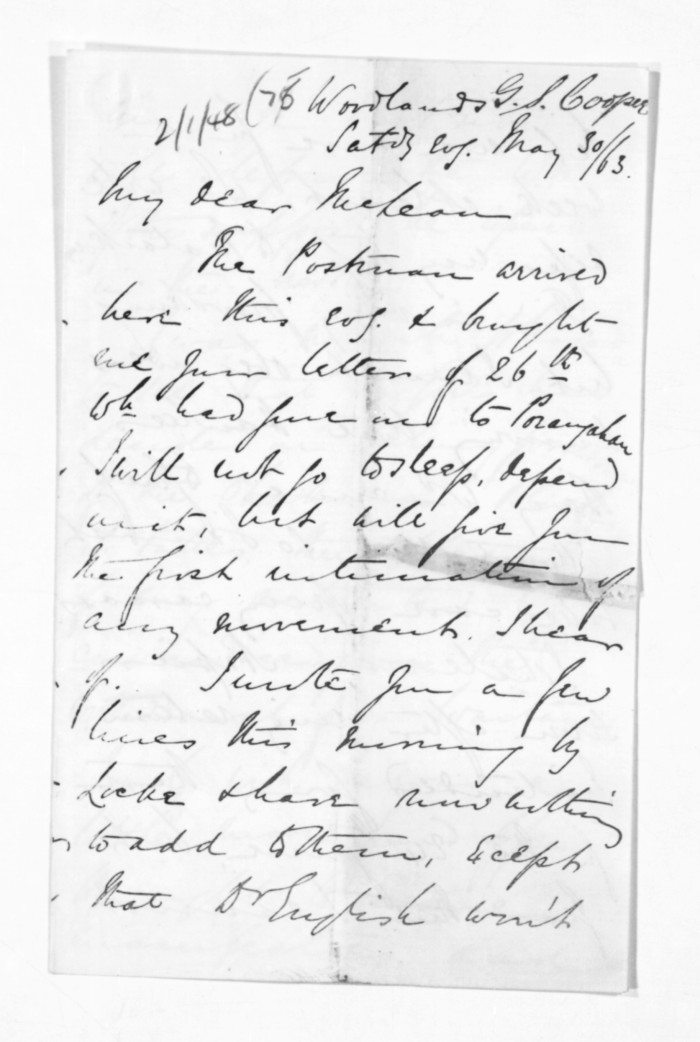 2/1/48 (78 Woodlands G. S. Cooper
Satdy evg. May 30/63.
My dear McLean
The Postman arrived
here this evg. & brought
me your letter of 26th
wh had gone on to Porangahau
I will not go to sleep, depend
on it, but will give you
the first intimation of
any movement. I hear
of. I wrote you a few
lines this morning by
Locke & have now nothing
to add to them, except
that Dr English won't